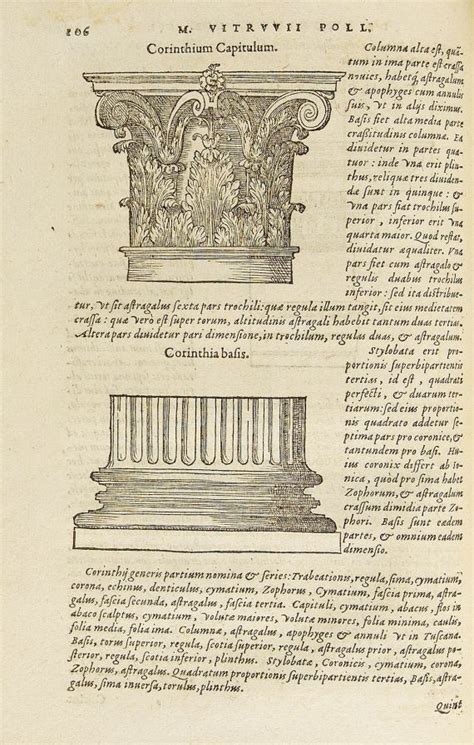 106 M. VITRVVII POLL.
Corinthium Capitulum.
Columna alta est, quã-
tum in ima parte est crassa
nouies, habetq́, astragalum
& apophyges cum annulis
suis, vt in alijs diximus.
Basis fiet alta media parte
crassitudinis columnæ. Ea
diuidetur in partes qua-
tuor: inde vna erit plin-
thus, reliquæ tres diuiden-
dæ sunt in quinque: &
vna pars fiat trochilus su-
perior, inferior erit vna
quarta maior. Quod restat,
diuidatur æqualiter. Vna
pars fiat cum astragalo &
regulis duabus trochilus
inferior: sed ita distribue-
tur, vt sit astragalus sexta pars trochili: quæ regula illum tangit, sit eius medietatem
crassa: quæ verò est super torum, altitudinis astragali habebit tantum duas tertias.
Altera pars diuidetur pari dimensione, in trochilum, regulas duas, & astragalum.
Corinthia basis.
Stylobata erit pro-
portionis superbipartientis
tertias, id est, quadrati
perfecti, & duarum ter-
tiarum: sed eius proportio-
nis quadrato addetur se-
ptima pars pro coronice, &
tantundem pro basi. Hu-
ius coronix differt ab Io-
nica, quòd pro sima habet
Zophorum, & astragalum
crassum dimidia parte Zo-
phori. Basis sunt eædem
partes, & omnium eadem
dimensio.
Corinthij generis partium nomina & series: Trabeationis, regula, sima, cymatium,
corona, echinus, denticulus, cymatium, Zophorus, Cymatium, fascia prima, astra-
galus, fascia secunda, astragalus, fascia tertia. Capituli, cymatium, abacus, flos in
abaco scalptus, cymatium, volutæ maiores, volutæ minores, folia minima, caulis,
folia media, folia ima. Columnæ, astragalus, apophyges & annuli vt in Tuscana.
Basis, torus superior, regula, scotia superior, regula, astragalus prior, astragalus po-
sterior, regula, scotia inferior, plinthus. Stylobatæ, Coronicis, cymatium, corona,
Zophorus, astragalus. Quadratum proportionis superbipartientis tertias, Basis, astra-
galus, sima inuersa, torulus, plinthus.
Quint